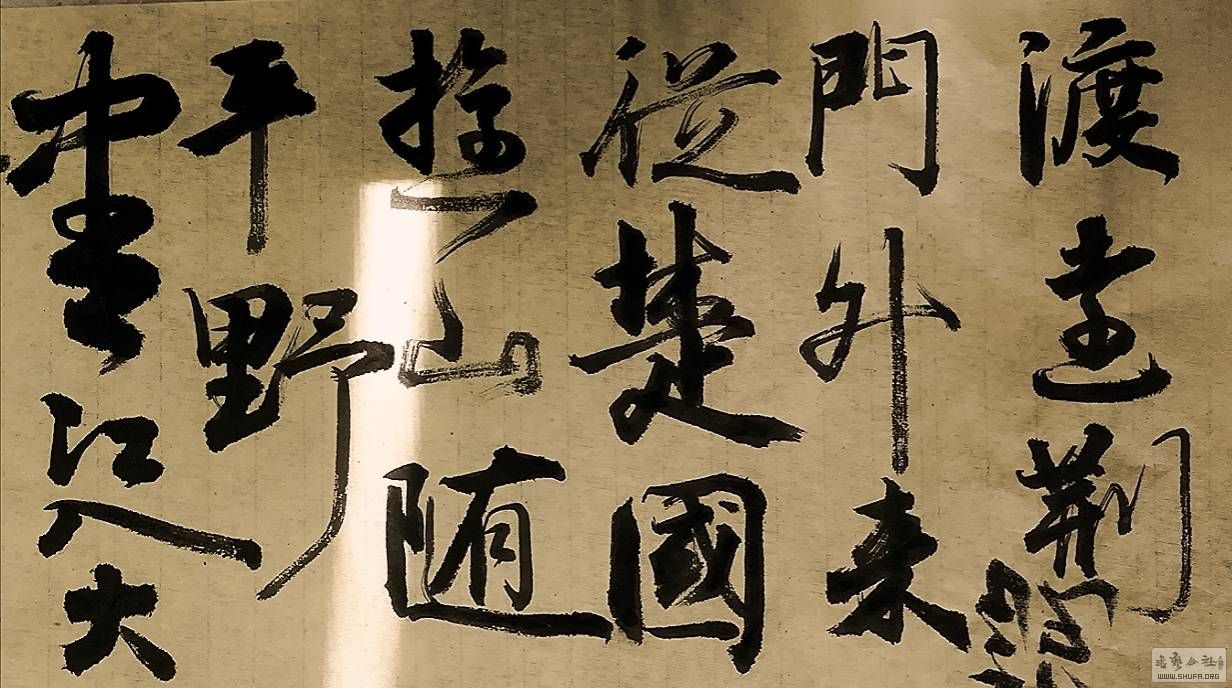 渡遠荆
門外来
從楚國
遊山随
平野
盡江入大
書藝公社
WWW.SHUFA.ORG